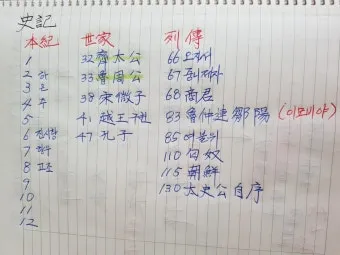 史記
本紀
1
2 하
3 은
4 주
5
6 진시황
7 항우
8 고조
9
10
11
12
世家
32 齊太公
33 魯周公
38 宋微子
41 越王
47 孔子
列傳
66 오자서
67
68 商君
83 魯仲連鄒陽
85 여불위
110 匈奴
115 朝鮮
130 太史公自序